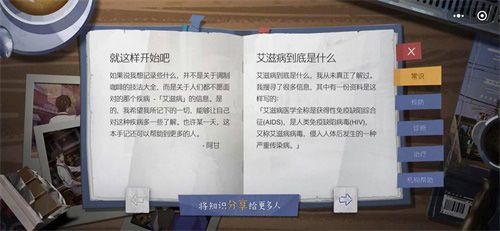 就这样开始吧
如果说我想记录些什么，并不是关于调制
咖啡的技法大全，而是关于人们都不愿面
对的那个疾病 -「艾滋病」的信息。是
的，我希望我所记下的一切，能够让自己
对这种疾病多一些了解。也许某一天，这
本手记还可以帮助到更多的人。
- 阿甘
艾滋病到底是什么
艾滋病到底是什么，我从未真正了解过。
我搜寻了很多信息，其中有一份资料是这
样写的：
「艾滋病医学全称是获得性免疫缺陷综合
征(AIDS)，是人类免疫缺陷病毒(HIV)，
又称艾滋病病毒，侵入人体后发生的一种
严重传染病。」
X
常识
预防
诊断
治疗
机构帮助
将知识分享给更多人